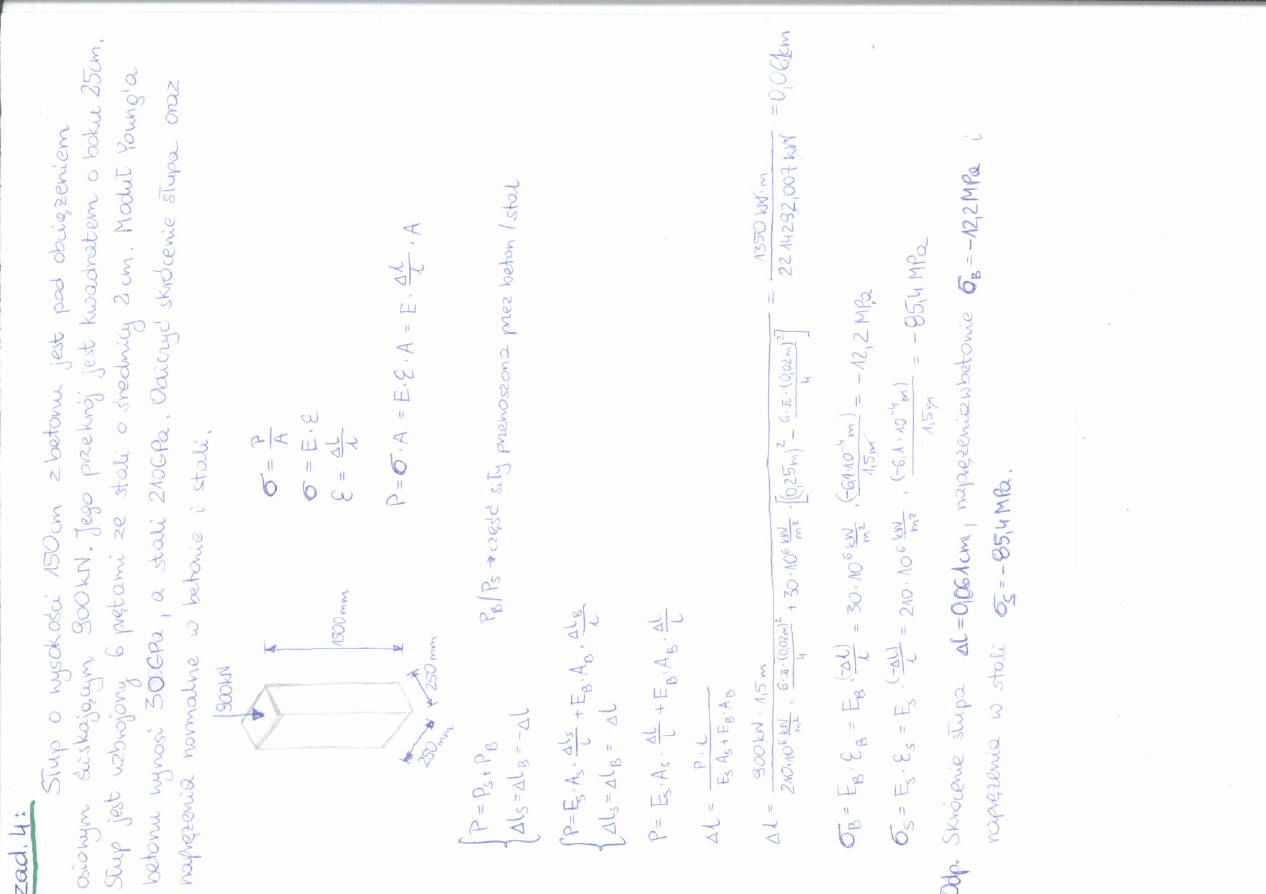 zad. 4:
Słup o wysokości 150cm z betonu jest pod obciążeniem
osiowym ściskającym 900kN. Jego przekrój jest kwadratem o boku 25cm.
Słup jest uzbrojony 6 prętami ze stali o średnicy 2cm. Moduł Young'a
betonu wynosi 30GPa, a stali 210GPa. Obliczyć skrócenie słupa oraz
naprężenia normalne w betonie i stali.
900kN
1500mm
250mm
250mm
σ = P/A
σ = E·ε
ε = Δl/l
P = σ·A = E·ε·A = E·Δl/l·A
P = P_S + P_B
Δl_S = Δl_B = -Δl
P_B/P_S → część siły przenoszona przez beton/stal
P = E_S·A_S·Δl_S/l + E_B·A_B·Δl_B/l
Δl_S = Δl_B = -Δl
P = E_S·A_S·Δl/l + E_B·A_B·Δl/l
Δl = P·l / E_S A_S + E_B·A_B
Δl = 900kN·1,5m / 210·10⁶ kN/m² · 6·π·(0,02m)²/4 + 30·10⁶ kN/m² · [(0,25m)² - 6·π·(0,02m)²/4] = 1350 kN·m / 2214292,007 kN = 0,061cm
σ_B = E_B·ε_B = E_B·(-Δl)/l = 30·10⁶ kN/m² · (-6,1·10⁻⁴ m)/1,5m = -12,2 MPa
σ_S = E_S·ε_S = E_S·(-Δl)/l = 210·10⁶ kN/m² · (-6,1·10⁻⁴ m)/1,5m = -85,4 MPa
Odp. Skrócenie słupa Δl = 0,061cm, naprężenia w betonie σ_B = -12,2 MPa i
naprężenia w stali σ_S = -85,4 MPa.